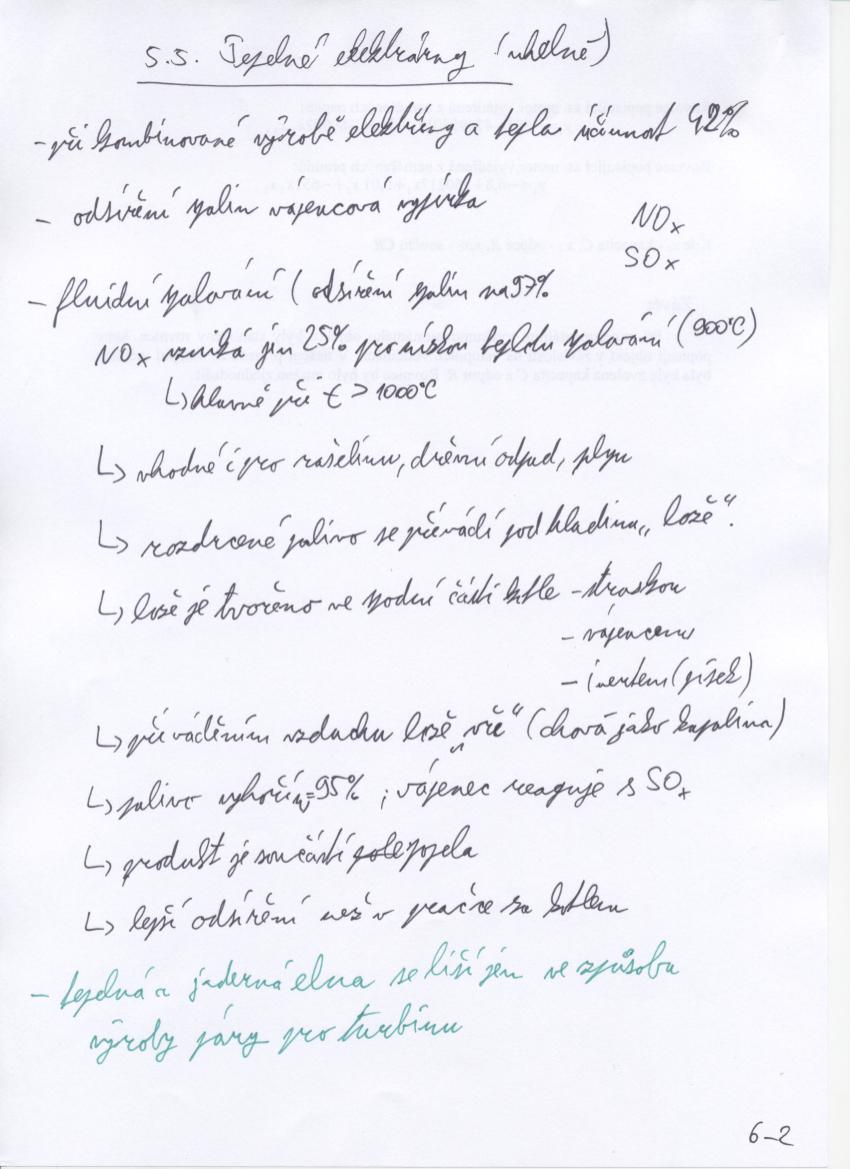 5.5. Tepelné elektrárny (uhelné)
- při kombinované výrobě elektřiny a tepla účinnost 42%
- odsíření spalin vápencová vypírka
NOx
SOx
- fluidní spalování (odsíření spalin na 97%
NOx vzniká jen 25% pro nízkou teplotu spalování (900°C)
↳ hlavně při t > 1000°C
↳ vhodné i pro rašelinu, dřevní odpad, plyn
↳ rozdrcené palivo se přivádí pod hladinu „lože“.
↳ lože je tvořeno ve spodní části kotle - struskou
- vápencem
- inertem (písek)
↳ přiváděním vzduchu lože „vře“ (chová jako kapalina)
↳ palivo vyhoří 95% ; vápenec reaguje s SOx
↳ produkt je součástí popela
↳ lepší odsíření než v pračce za kotlem
- tepelná a jaderná elna se liší jen ve způsobu
výroby páry pro turbínu
6-2